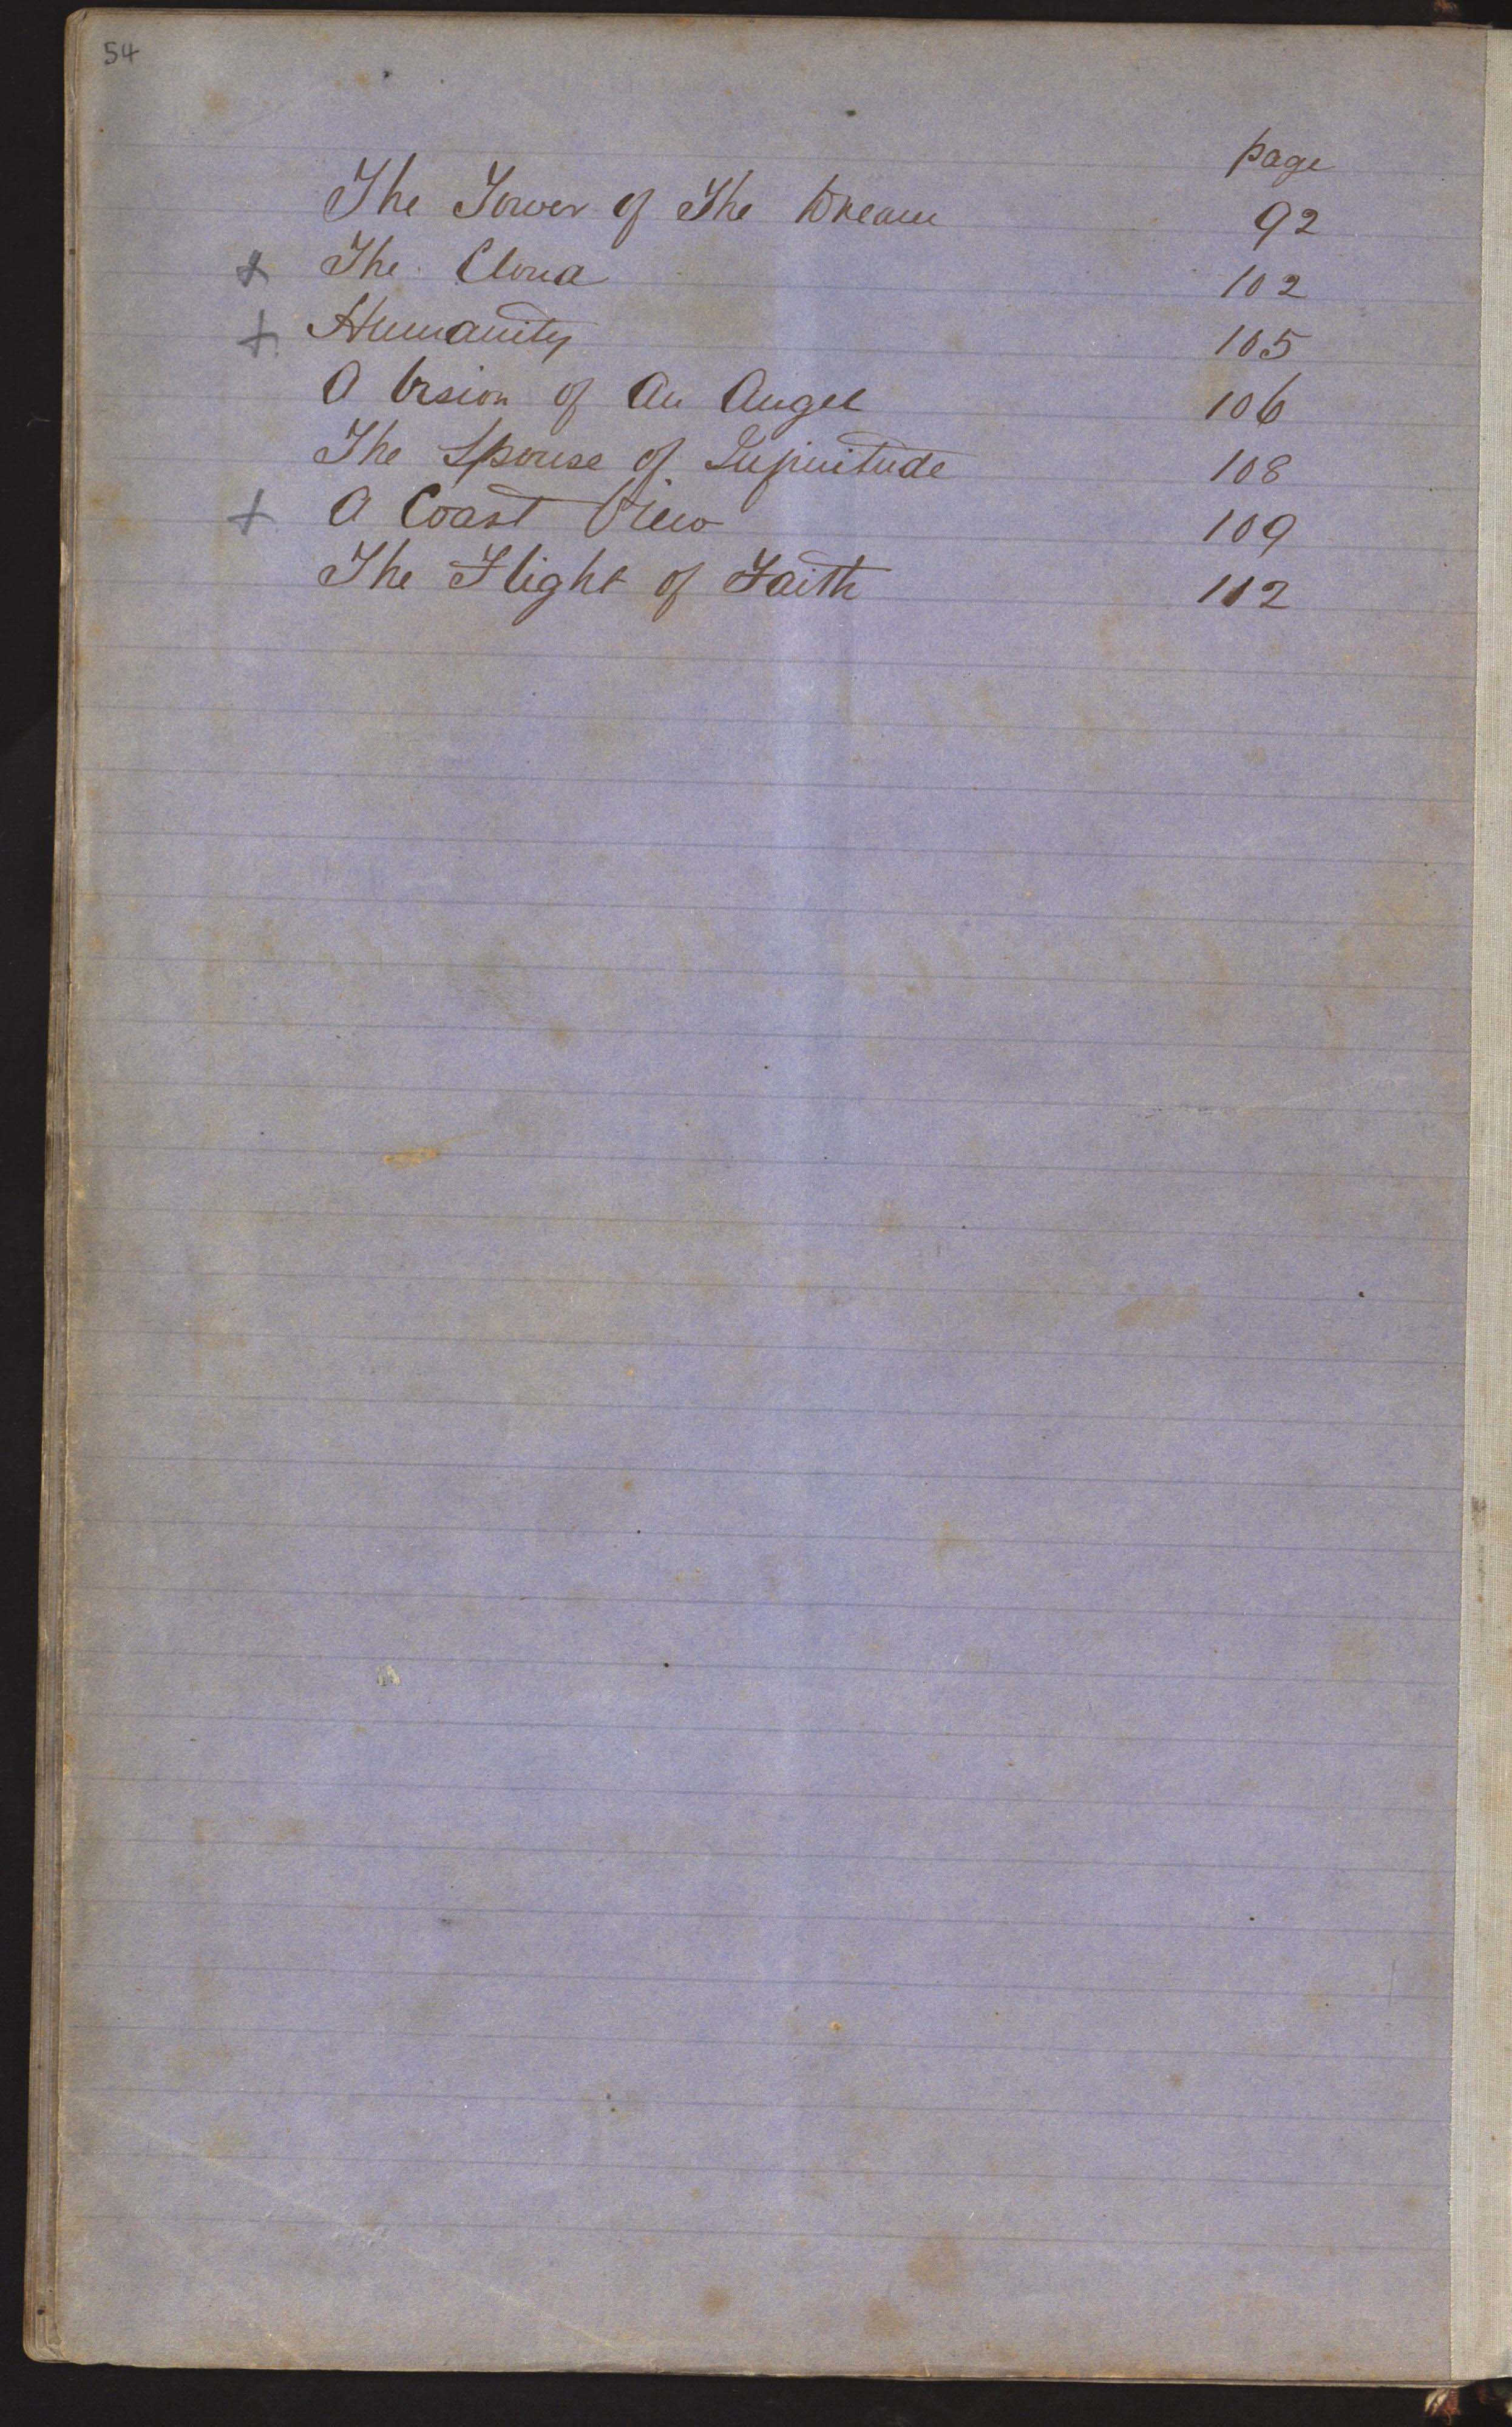 54
page
The Tower of The Dream 92
x The Cloud 102
+ Humanity 105
A Vision of An Angel 106
The Spouse of Infinitude 108
+ A Coast View 109
The Flight of Faith 112